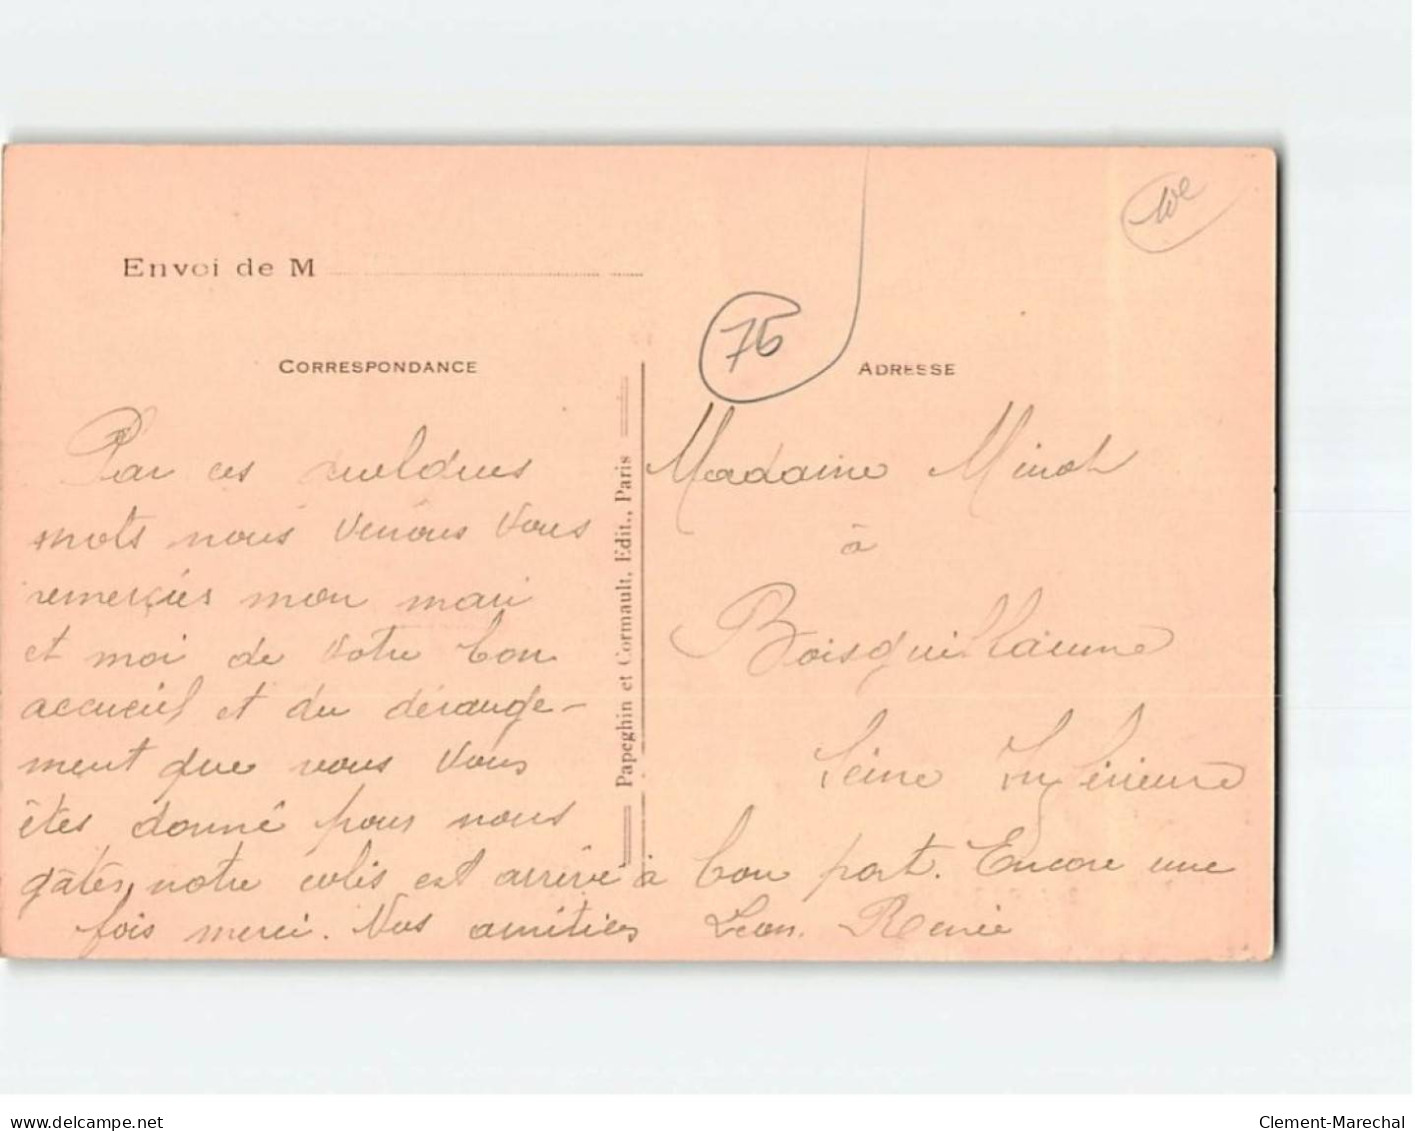 10e
Envoi de M
75
CORRESPONDANCE
ADRESSE
Par ces quelques
mots nous venons vous
remerciés mon mari
et moi de votre bon
accueil et du dérange-
ment que vous vous
êtes donné pour nous
gâter, notre colis est arrivé à bon port. Encore une
fois merci. Nos amitiés Léon. Renée
Papeghin et Cormault, Edit., Paris
Madame Minot
à
Boisguillaume
Seine Inférieure
www.delcampe.net
Clement-Marechal